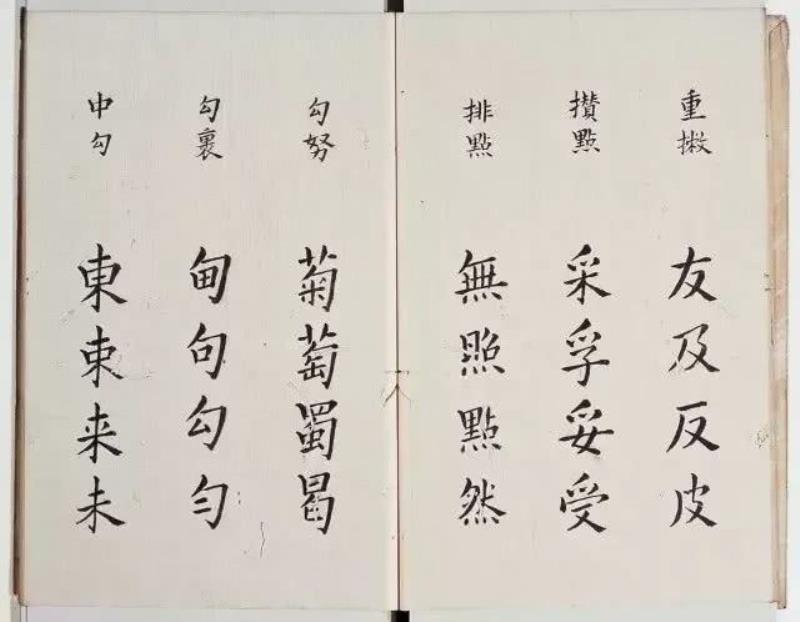 重撇
友及反皮
攢點
采孚妥受
排點
無照點然
勾努
菊萄蜀曷
勾裹
甸句勾勻
中勾
東柬来未